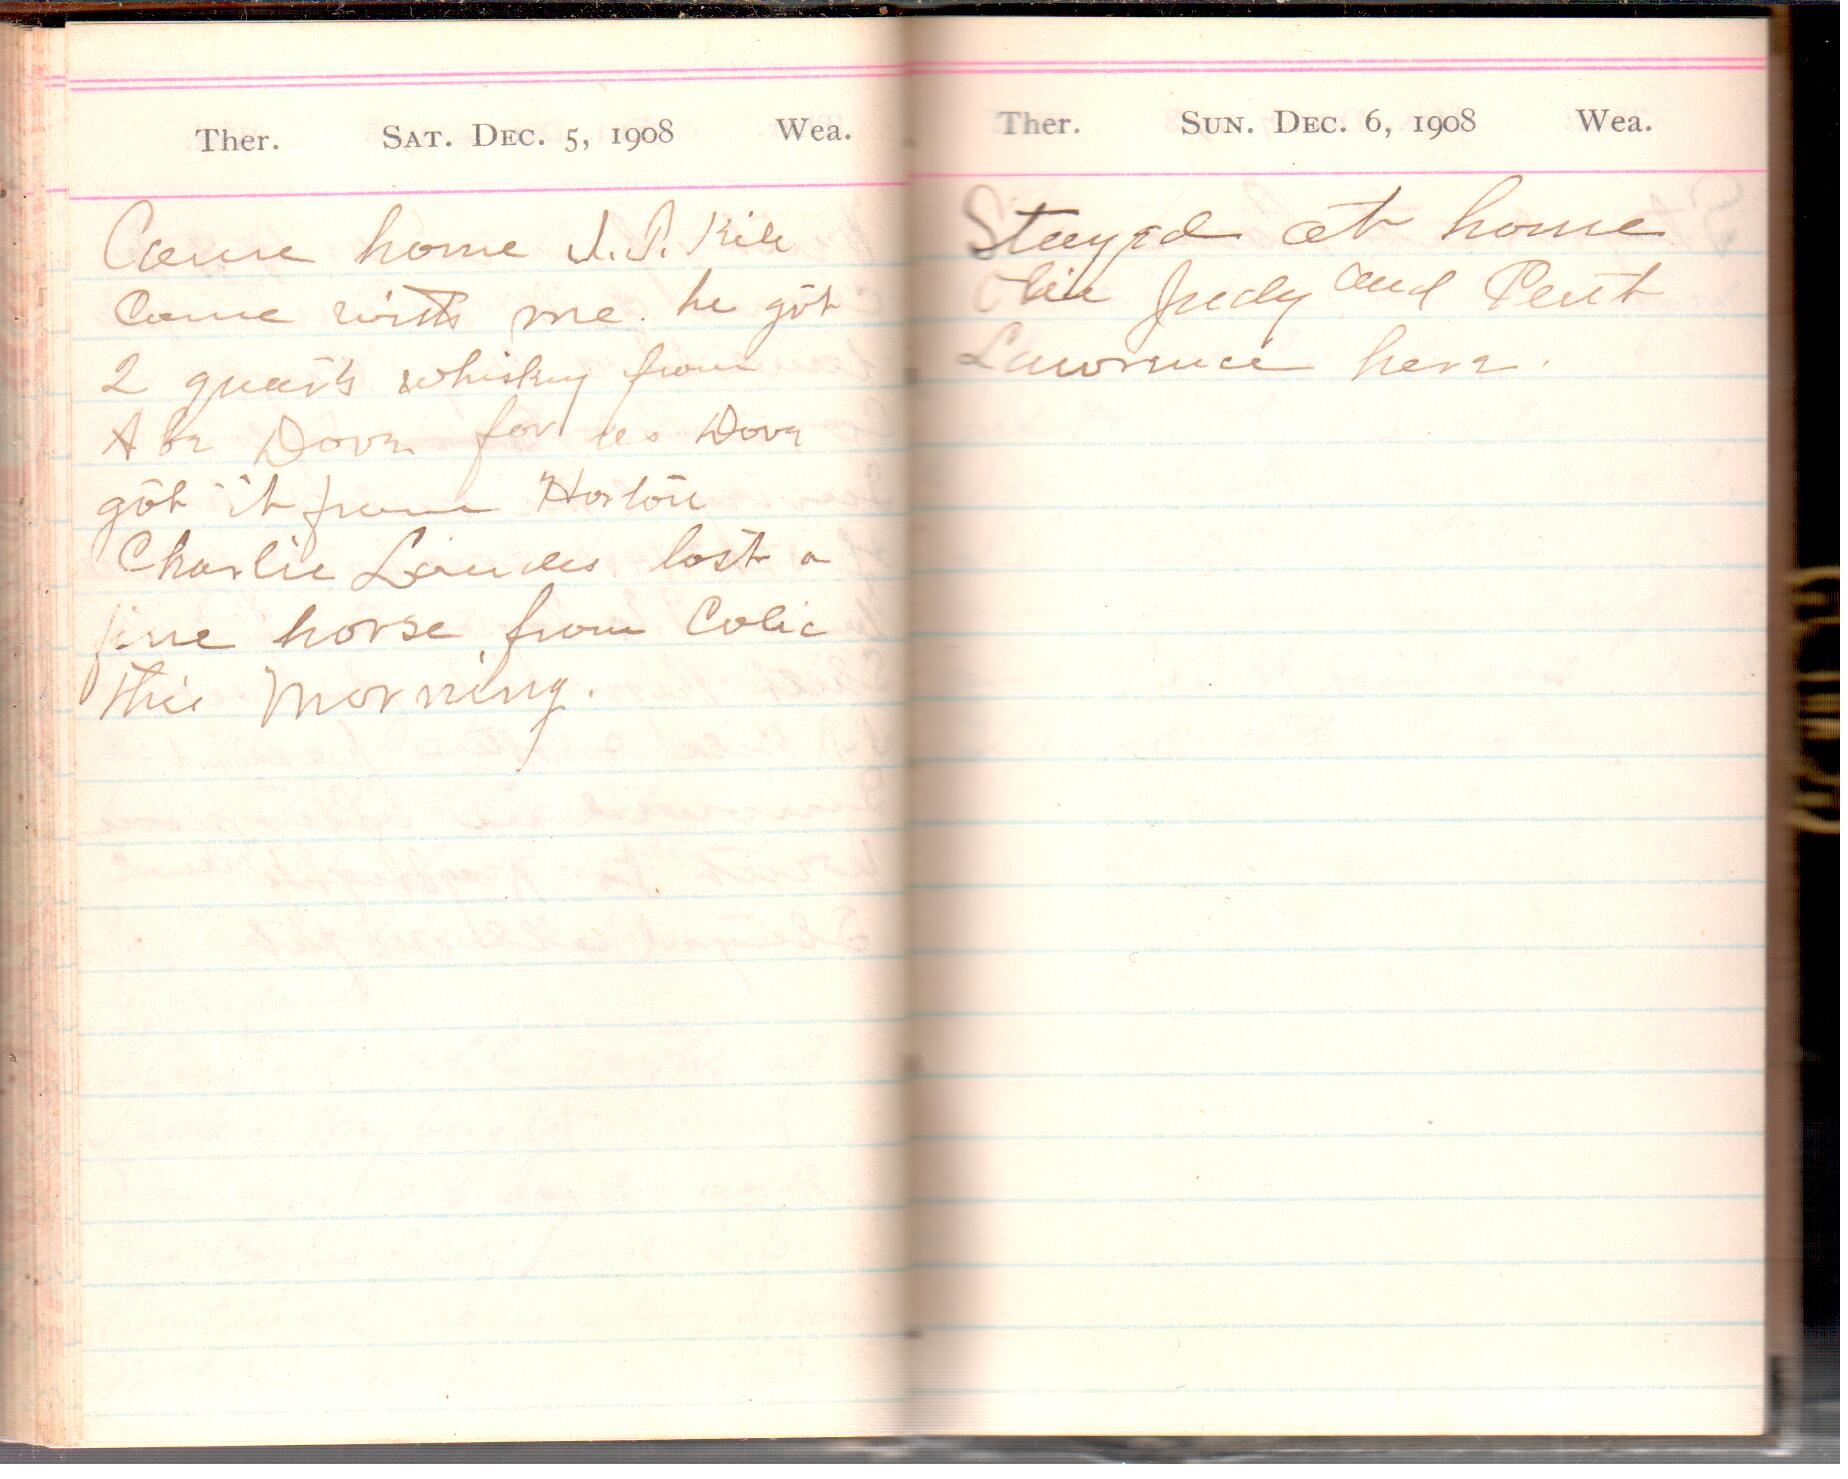 Ther. SAT. DEC. 5, 1908 Wea.
Came home J.S. Kile
Came with me. he got
2 quarts whiskey from
Abe Dove for us Dove
got it from Horton
Charlie Landes lost a
fine horse from Colic
this Morning.
Ther. SUN. DEC. 6, 1908 Wea.
Stayed at home
Olie Judy and Pent
Lawrence here.